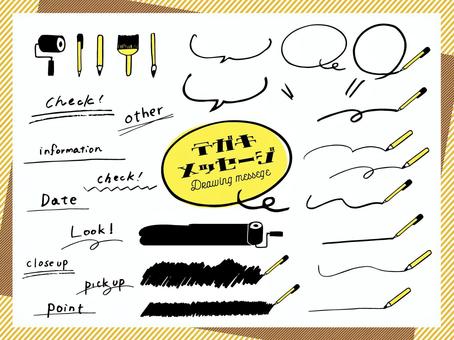 Check!
other
information
check!
Date
Look!
close up
pick up
Point
テガキ
メッセージ
Drawing messege